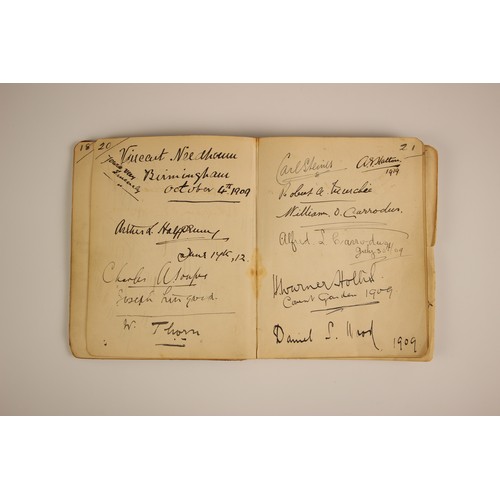 18
20
Yours very
Sincerely
Vincent Needham
Birmingham
October 4th 1909
Arthur L. Halfpenny
June 14th, 12.
Charles A
Joseph Livegood
W. Thorn
21
Carl Steiner
1909
Robert A
William O. Carrodus.
Alfred L Barrodus
July 3. 1909
H Warner Hollis
Covent Garden 1909
Daniel S. Wood
1909